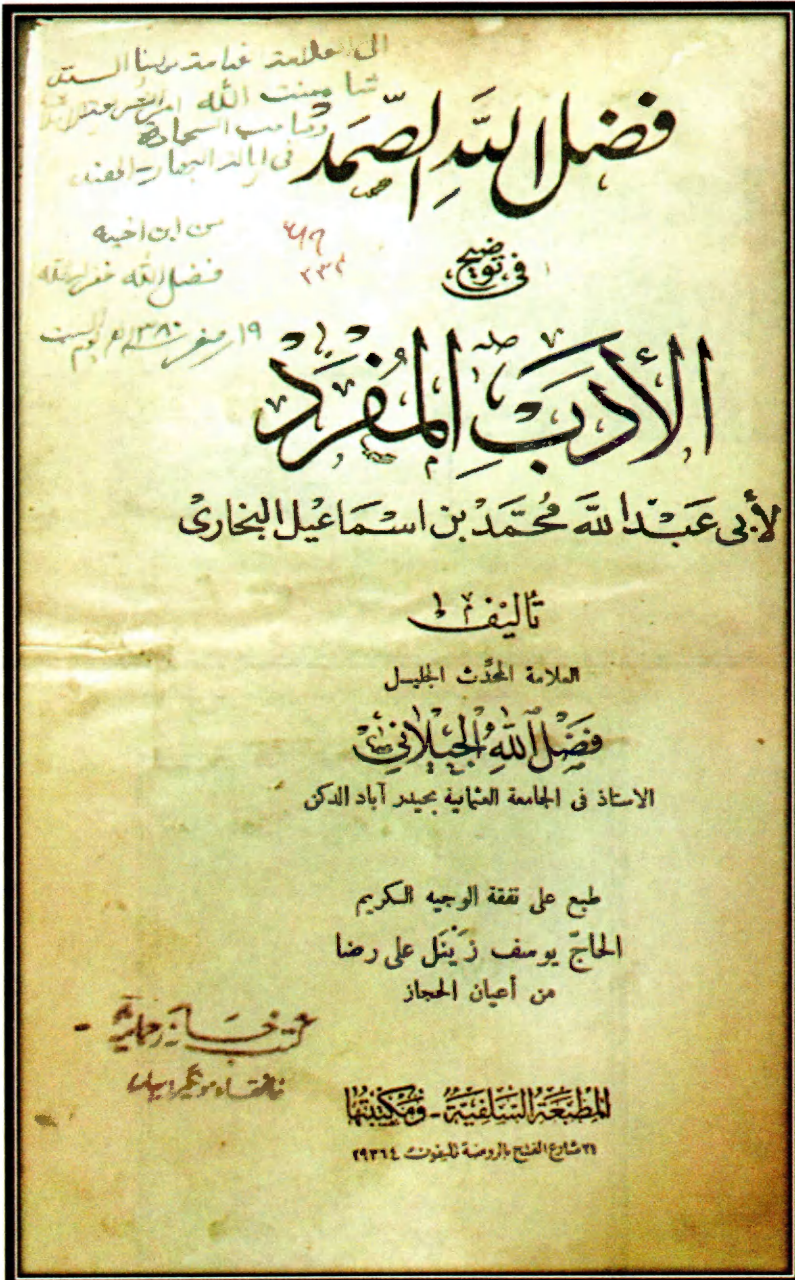 فضل الله الصمد
في توضيح
الأدب المفرد
لأبي عبد الله محمد بن اسماعيل البخارى
تأليف
العلامة المحدث الجليل
فضل الله الجيلاني
الاستاذ فى الجامعة العثمانية بحيدر آباد الدكن
طبع على نفقة الوجيه الكريم
الحاجّ يوسف زَيْنَل على رضا
من أعيان الحجاز
المطبعة السلفية - ومكتبتها
٢١ شارع الفتح بالروضة تليفون ٢٩٣٦٤
الى العلامة
منت الله
من ابن اخيه
فضل الله غفر الله له
١٩ صفر ١٣٨٠ يوم السبت
٢٣٢
كتب خانه رحمانيه
خانقاه مونگير بہار